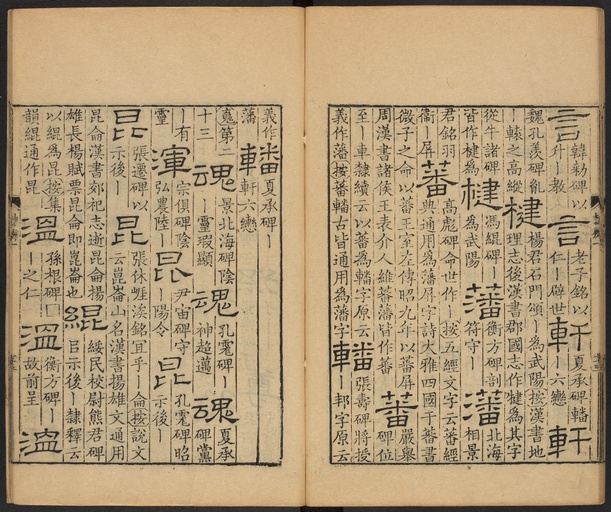 言韓勑碑以升—教言老子銘以仁—辟世軒夏承碑轓—六戀軒
魏孔羨碑乱—轅之高縱楗楊君石門頌—為武陽按漢書地理志後漢書郡國志作犍為其字
從牛諸碑皆作楗為楗馮緄碑—為武陽藩衡方碑剖符守—藩北海相景
君銘羽衛—屏蕃高彪碑命世作—按五經文字云蕃經典通用為藩屏字詩大雅四國于蕃書
微子之命以蕃王室左傳昭九年以蕃屏周漢書諸侯王表介人維蕃藩皆作蕃蕃嚴舉碑位
至—車隸續云以蕃為轓字原云義作藩按蕃轓古皆通用為藩字轓張壽碑將授—邦字原云
義作藩轓夏承碑—軒六戀
䰟第二十三魂景北海碑陰—靈瑕顯魂孔宙碑—神超邁魂夏承碑黨
—有靈渾宗俱碑陰弘農陸—昆尹宙碑守—陽令昆孔宙碑昭示後—
昆張遷碑以—示後昆張休崕涘銘宜乎—侖按說文云崑崙山名漢書揚雄文通用
昆侖漢書郊祀志遊昆侖揚雄長楊賦票昆侖即崑崙也緄綏民校尉熊君碑㠯示後—隸釋云
以緄為昆按集韻緄通作昆溫孫根碑□—之仁溫衡方碑—故前呈溫